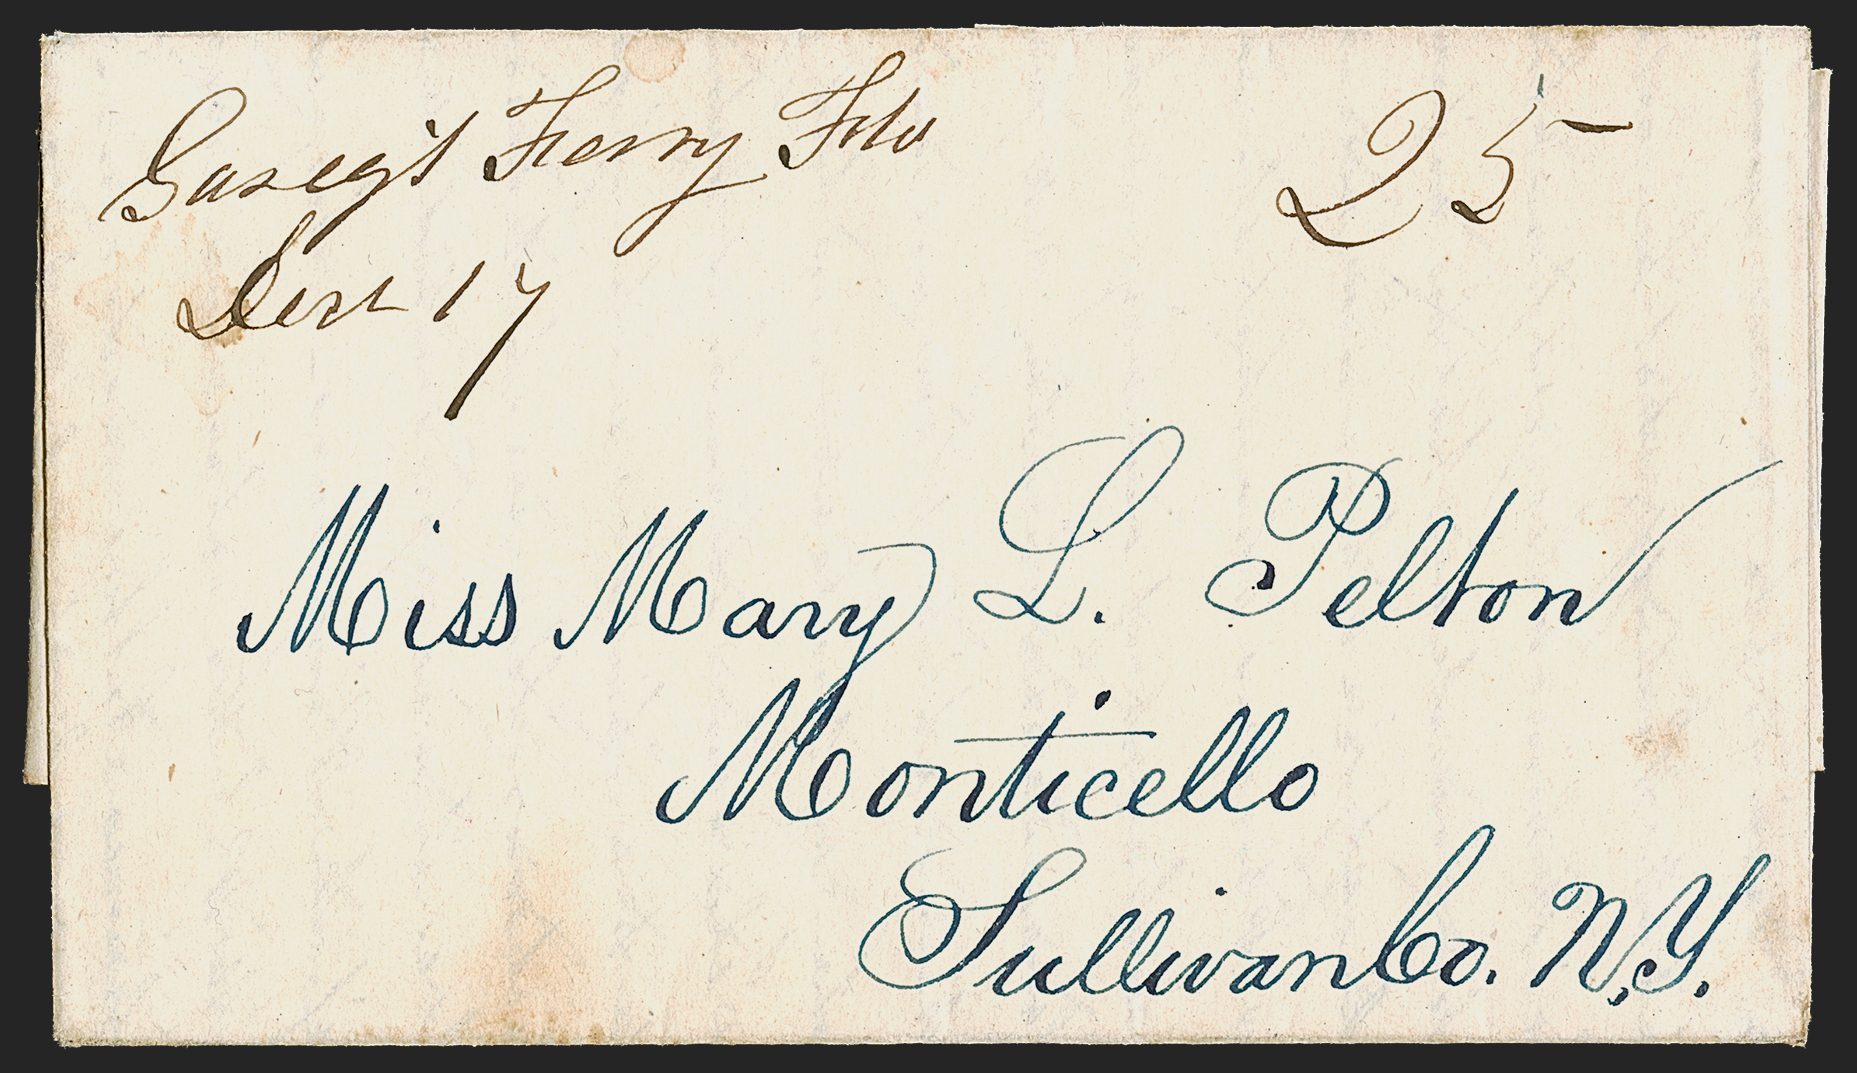 Garey's Ferry Flo 25
Decr 17
Miss Mary L. Pelton
Monticello
Sullivan Co. N.Y.